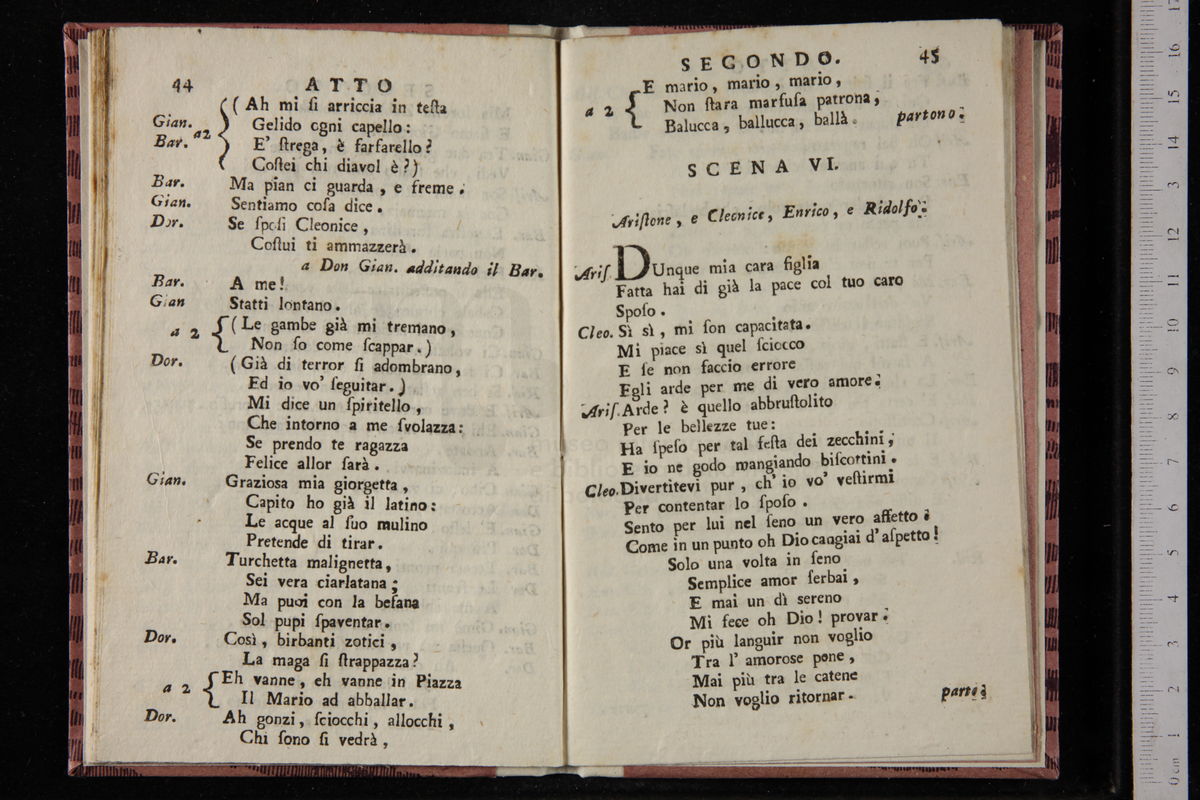 44 ATTO
Gian. Bar. a2 (Ah mi ſi arriccia in teſta
Gelido cgni capello:
E' ſtrega, è farfarello?
Coſtei chi diavol è?)
Bar. Ma pian ci guarda, e freme.
Gian. Sentiamo coſa dice.
Dor. Se ſpoſi Cleonice,
Coſtui ti ammazzerà.
a Don Gian. additando il Bar.
Bar. A me!
Gian Statti lontano.
a 2 (Le gambe già mi tremano,
Non ſo come ſcappar.)
Dor. (Già di terror ſi adombrano,
Ed io vo' ſeguitar.)
Mi dice un ſpiritello,
Che intorno a me ſvolazza:
Se prendo te ragazza
Felice allor ſarà.
Gian. Grazioſa mia giorgetta,
Capito ho già il latino:
Le acque al ſuo mulino
Pretende di tirar.
Bar. Turchetta malignetta,
Sei vera ciarlatana;
Ma puoi con la beſana
Sol pupi ſpaventar.
Dor. Così, birbanti zotici,
La maga ſi ſtrappazza?
a 2 Eh vanne, eh vanne in Piazza
Il Mario ad abballar.
Dor. Ah gonzi, ſciocchi, allocchi,
Chi ſono ſi vedrà,
SECONDO. 45
a 2 E mario, mario, mario,
Non ſtara marfuſa patrona,
Balucca, ballucca, ballà. partono.
SCENA VI.
Ariſtone, e Cleonice, Enrico, e Ridolfo.
Ariſ. DUnque mia cara figlia
Fatta hai di già la pace col tuo caro
Spoſo.
Cleo. Sì sì, mi ſon capacitata.
Mi piace sì quel ſciocco
E ſe non faccio errore
Egli arde per me di vero amore.
Ariſ. Arde? è quello abbruſtolito
Per le bellezze tue:
Ha ſpeſo per tal feſta dei zecchini,
E io ne godo mangiando biſcottini.
Cleo. Divertitevi pur, ch' io vo' veſtirmi
Per contentar lo ſpoſo.
Sento per lui nel ſeno un vero affetto:
Come in un punto oh Dio cangiai d'aſpetto!
Solo una volta in ſeno
Semplice amor ſerbai,
E mai un dì sereno
Mi fece oh Dio! provar.
Or più languir non voglio
Tra l' amorose pene,
Mai più tra le catene
Non voglio ritornar. parte.